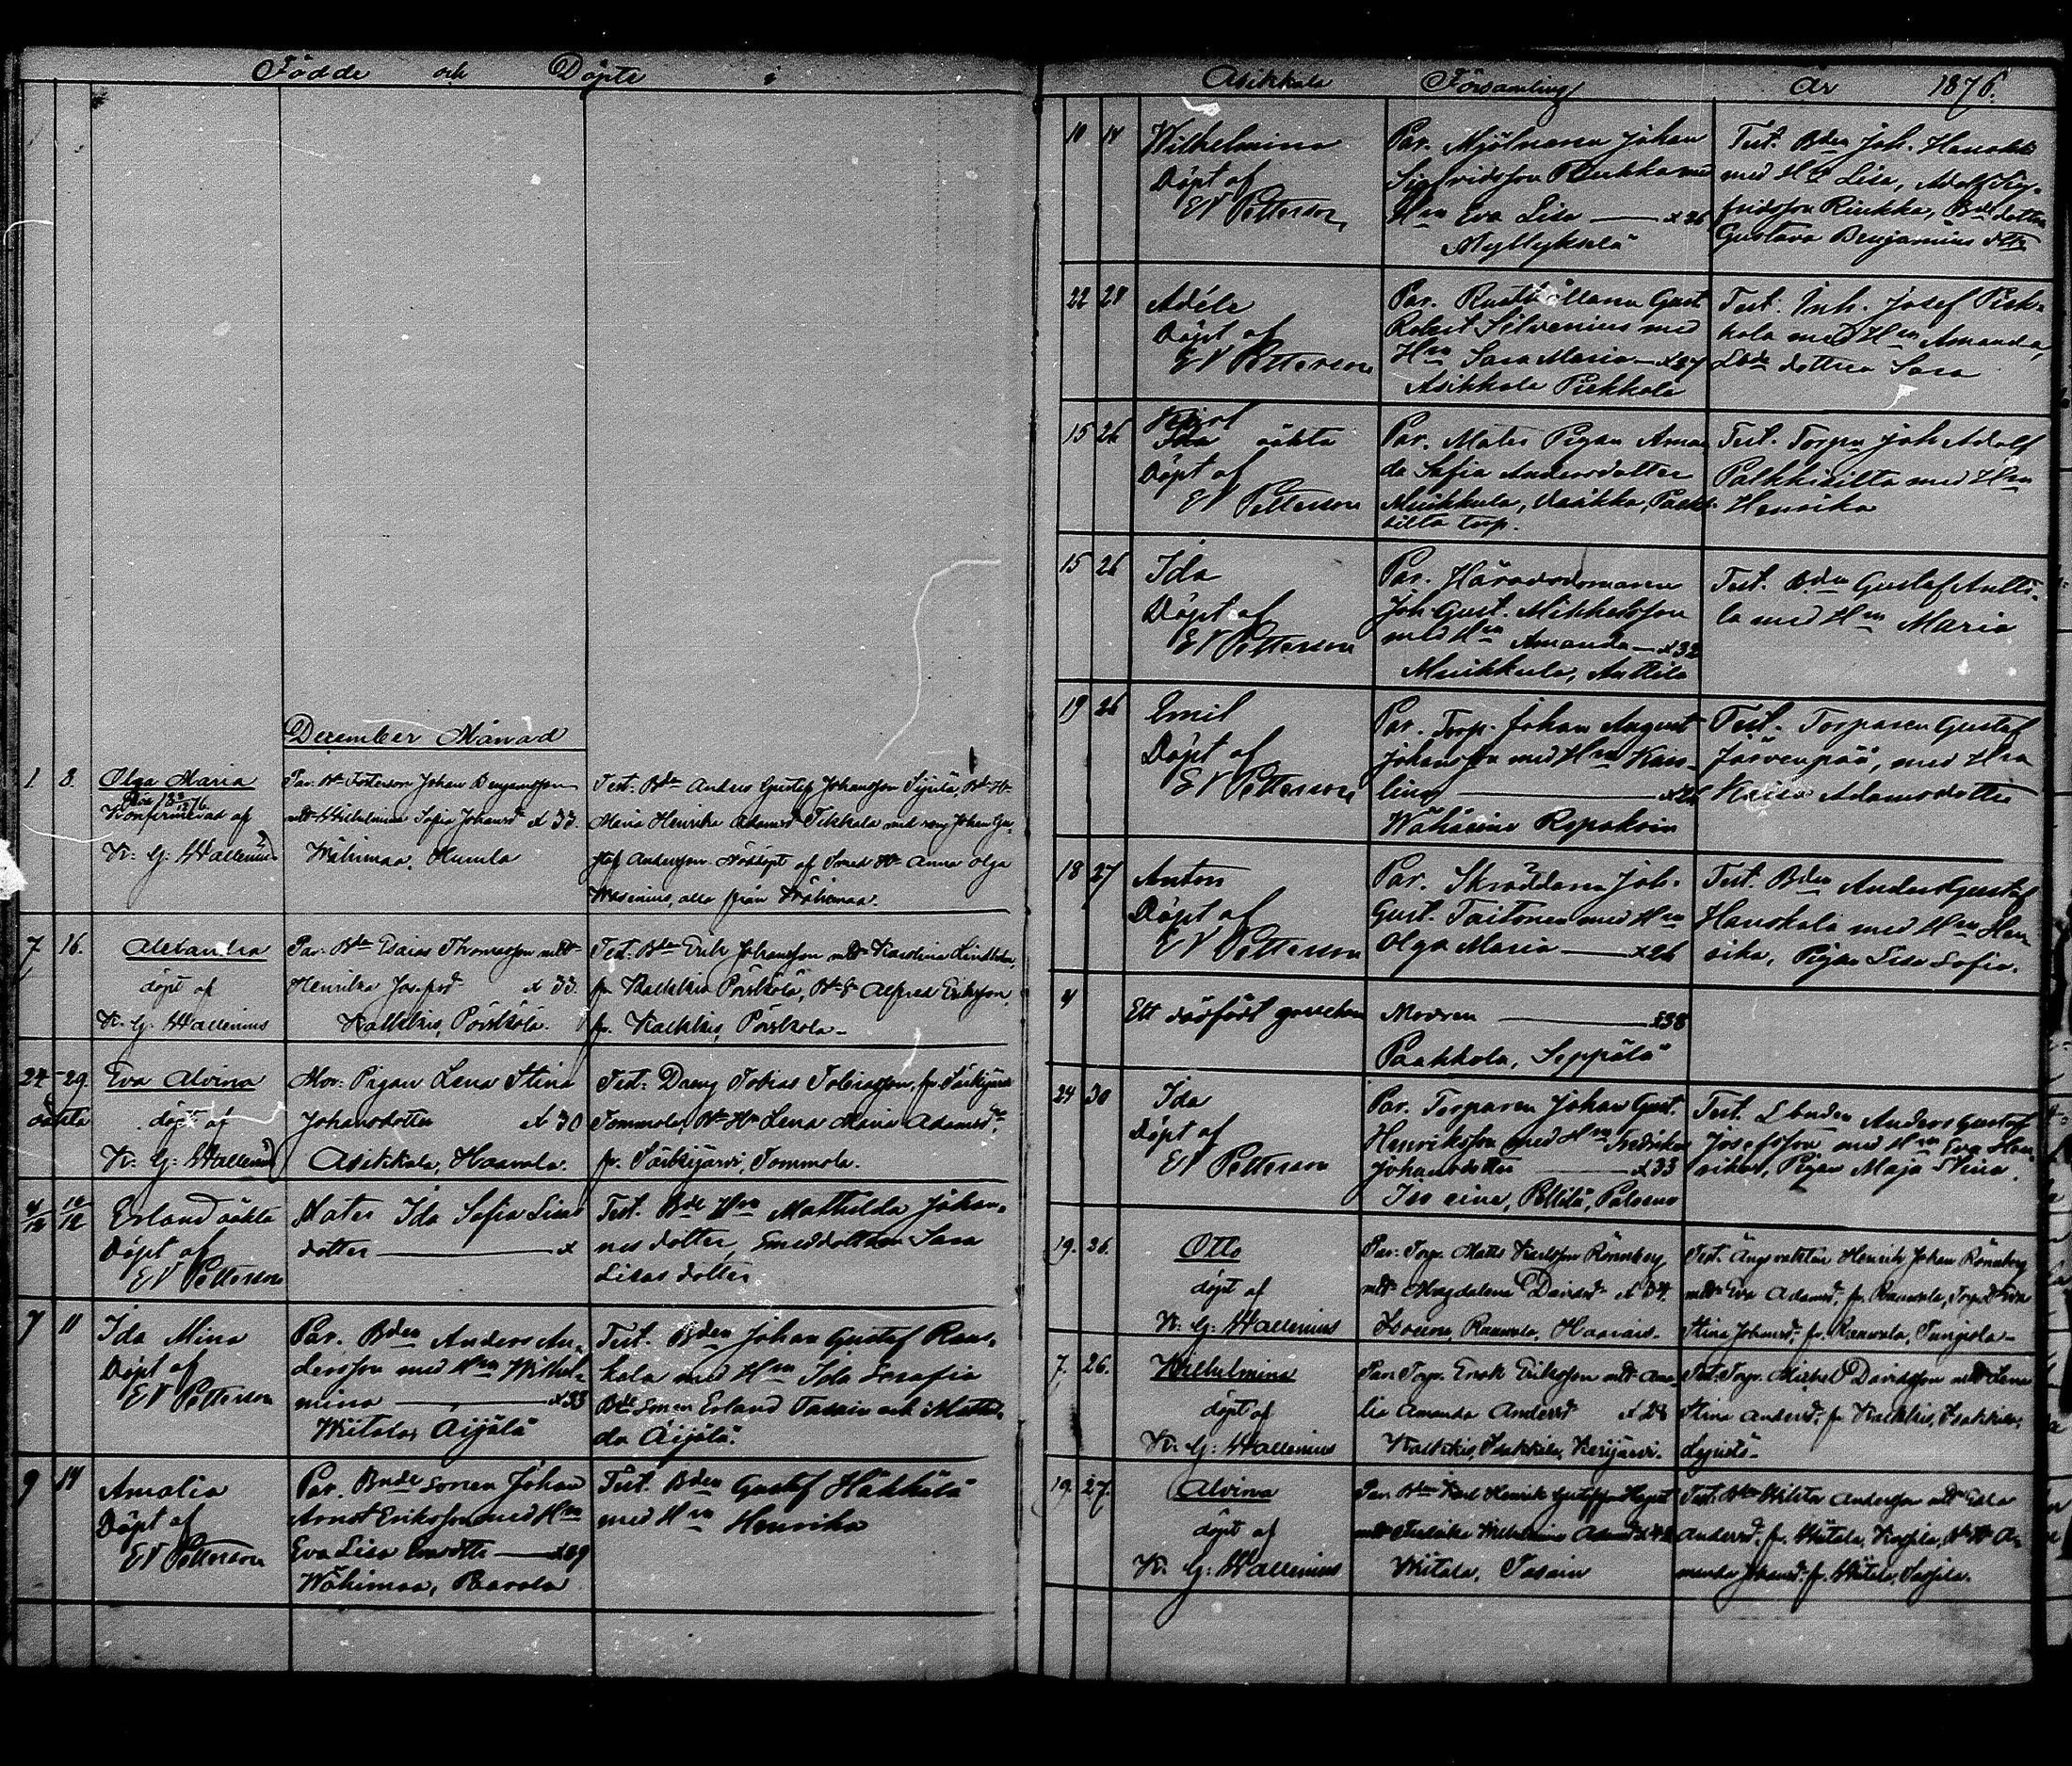 Födde och Döpte i
December Månad
1 3. Olga Maria
Konfirmerad af
K. G. Wallenius
Par. Johan Benjamsson
Wilhelmina Sofia Johansd. 33.
Wähimaa, Humla
Test. Bdn Anders Gustaf Johansson
Maria Henrika Adamsd. Tikkala med Johan Gu-
staf Andersson. Nöddöpt af Smed Anna Olga
Wasenius, alla från Wähimaa.
7 16. Alexandra
döpt af
K. G. Wallenius
Par. Bdn Esaias Thomasson
Henrika Josefsd. 33.
Kalkkis, Pörsköla.
Test. Bdn Erik Johansson Karolina Lindholm,
fr. Kalkkis Pörsköla, Alfred Eriksson,
fr. Kalkkis, Pörskola
24 29. Eva Alvina
oäkta döpt af
K. G. Wallenius
Mor: Pigan Lena Stina
Johansdotter 30
Asikkala, Haavola.
Test: Dreng Tobias Tobiasson, fr. Särkijärvi
Tommola, Lena Maria Adamsd.
fr. Särkijärvi, Tommola.
4/12 12/12 Erland oäkta
Döpt af
EN Petterson
Mater Ida Sofia Lisas
dotter
Test. Bde Hrn Mathilda Johan-
nes dotter, Smeddottren Sara
Lisas dotter
7 11 Ida Mina
Döpt af
EN Petterson
Par. Bden Anders An-
dersson med Hrn Wilhel-
mina 33
Wiitala, Äijälä
Test. Bden Johan Gustaf Raus-
kala med Hrn Ida Serafia
Bde Sonen Erland Tasain och Mathil-
da Äijälä.
9 14 Amalia
Döpt af
EN Petterson
Par. Bnde sonen Johan
Arnst Eriksson med Hrn
Eva Lisa
Wähimaa, Raavola
Test. Bden Gustaf Häkkälä
med Hrn Henrika
Asikkala Församling År 1876.
10 14 Wilhelmina
Döpt af
EN Petterson,
Par. Mjölnaren Johan
Sigfridsson Riukka med
Hrn Eva Lisa 26
Myllykselä
Test. Bden Joh. Hanskala
med Hrn Lisa, Adolf Sig-
fridsson Riukka, Bde dottren
Gustava Benjamins dttr
22 28 Adéle
Döpt af
EN Petterson
Par. Rusthållaren Gust
Robert Silvenius med
Hrn Sara Maria 27
Asikkala Pirkkola
Test: Inh. Josef Pirk-
kola med Hrn Amanda,
dottren Sara
15 26
oäkta
Döpt af
EN Petterson
Par. Mater Pigan Aman
da Sofia Andersdotter
Muikkula,
silta torp.
Test. Torpn Joh Adolf
Palkkisilta med Hrn
Henrika
15 26 Ida
Döpt af
EN Petterson
Par. Häradsdomaren
Joh Gust. Mikkelsson
med Hrn Amanda 32
Muikkula, Anttila
Test. Bden Gustaf Antti-
la med Hrn Maria
19 26 Emil
Döpt af
EN Petterson
Par. Torp. Johan August
Johansson med Hrn Karo-
lina 26
Wähäeine
Test. Torparen Gustaf
Järvenpää, med Hrn
Kaisa Adamsdotter
18 27 Anton
Döpt af
EN Petterson
Par. Skräddaren Joh.
Gust. Taitonen med Hrn
Olga Maria 26
Test. Bden Anders Gustaf
Hanskala med Hrn Hen
rika, Pigan Lisa Sofia.
4 Ett dödfödt gossebarn
Modren 38
Paakkola, Seppälä
24 30 Ida
Döpt af
EN Petterson
Par. Torparen Johan Gust.
Henriksson med Hrn Fredrika
Johansdotter 33
Iso eine, Pettilä, Palomo
Test. Anders Gustaf
Josefsson med Hrn Eva Hen-
rika, Pigan Maja Stina
19. 26. Otto
döpt af
K. G. Wallenius
Par. Torp. Matts Karlsson Rönnberg
Magdalena Davidsd. 34.
Rauvola,
Test. Ängsvaktar Henrik Johan Rönnberg
Eva Adamsd. fr. Rauvola,
Stina Johansd. fr. Rauvola,
7. 26. Wilhelmina
döpt af
K. G. Wallenius
Par. Torp. Enok Eriksson Ama-
lia Amanda Andersd. 28
Kalkkis, Isakkila, Kerijärvi.
Test. Torp. Mickel Davidsson Lena
Stina Andersd. fr. Kalkkis, Isakkila,
19. 27. Alvina
döpt af
K. G. Wallenius
Par. Bdn Karl Henrik Gustafsson
Fredrika Wilhelmina Adamsd.
Wiitala, Tasain
Test. Bdn Wiktor Andersson
Andersd. fr. Wiitala, A-
manda Johansd. fr. Wiitala,